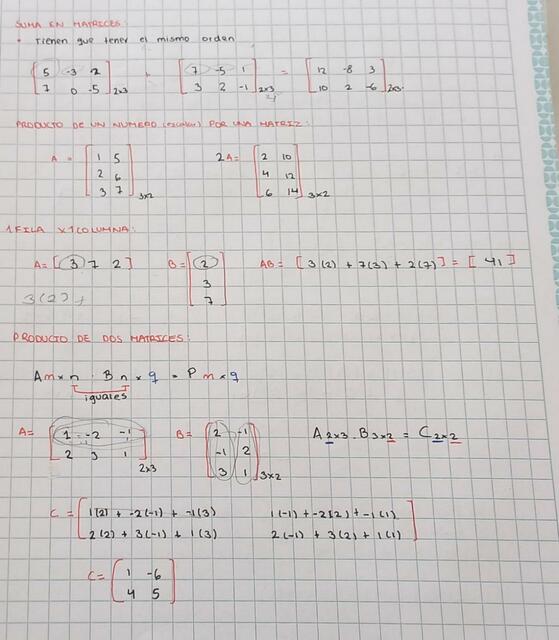 SUMA EN MATRICES:
• Tienen que tener el mismo orden
[5 -3 2] + [7 -5 1] = [12 -8 3]
[7 0 -5]2x3 [3 2 -1]2x3 [10 2 -6]2x3
PRODUCTO DE UN NUMERO (escalar) POR UNA MATRIZ:
A = [1 5] 2A = [2 10]
[2 6] [4 12]
[3 7]3x2 [6 14]3x2
1 FILA X 1 COLUMNA:
A = [3 7 2] B = [2] AB = [3(2) + 7(3) + 2(7)] = [41]
[3]
3(2) +
[7]
PRODUCTO DE DOS MATRICES:
Am x n · Bn x q = Pm x q
iguales
A = [1 -2 -1] B = [2 -1] A2x3 . B3x2 = C2x2
[2 3 1]2x3 [-1 2]
[3 1]3x2
C = [1(2) + -2(-1) + -1(3) 1(-1) + -2(2) + -1(1)]
[2(2) + 3(-1) + 1(3) 2(-1) + 3(2) + 1(1)]
C = [1 -6]
[4 5]